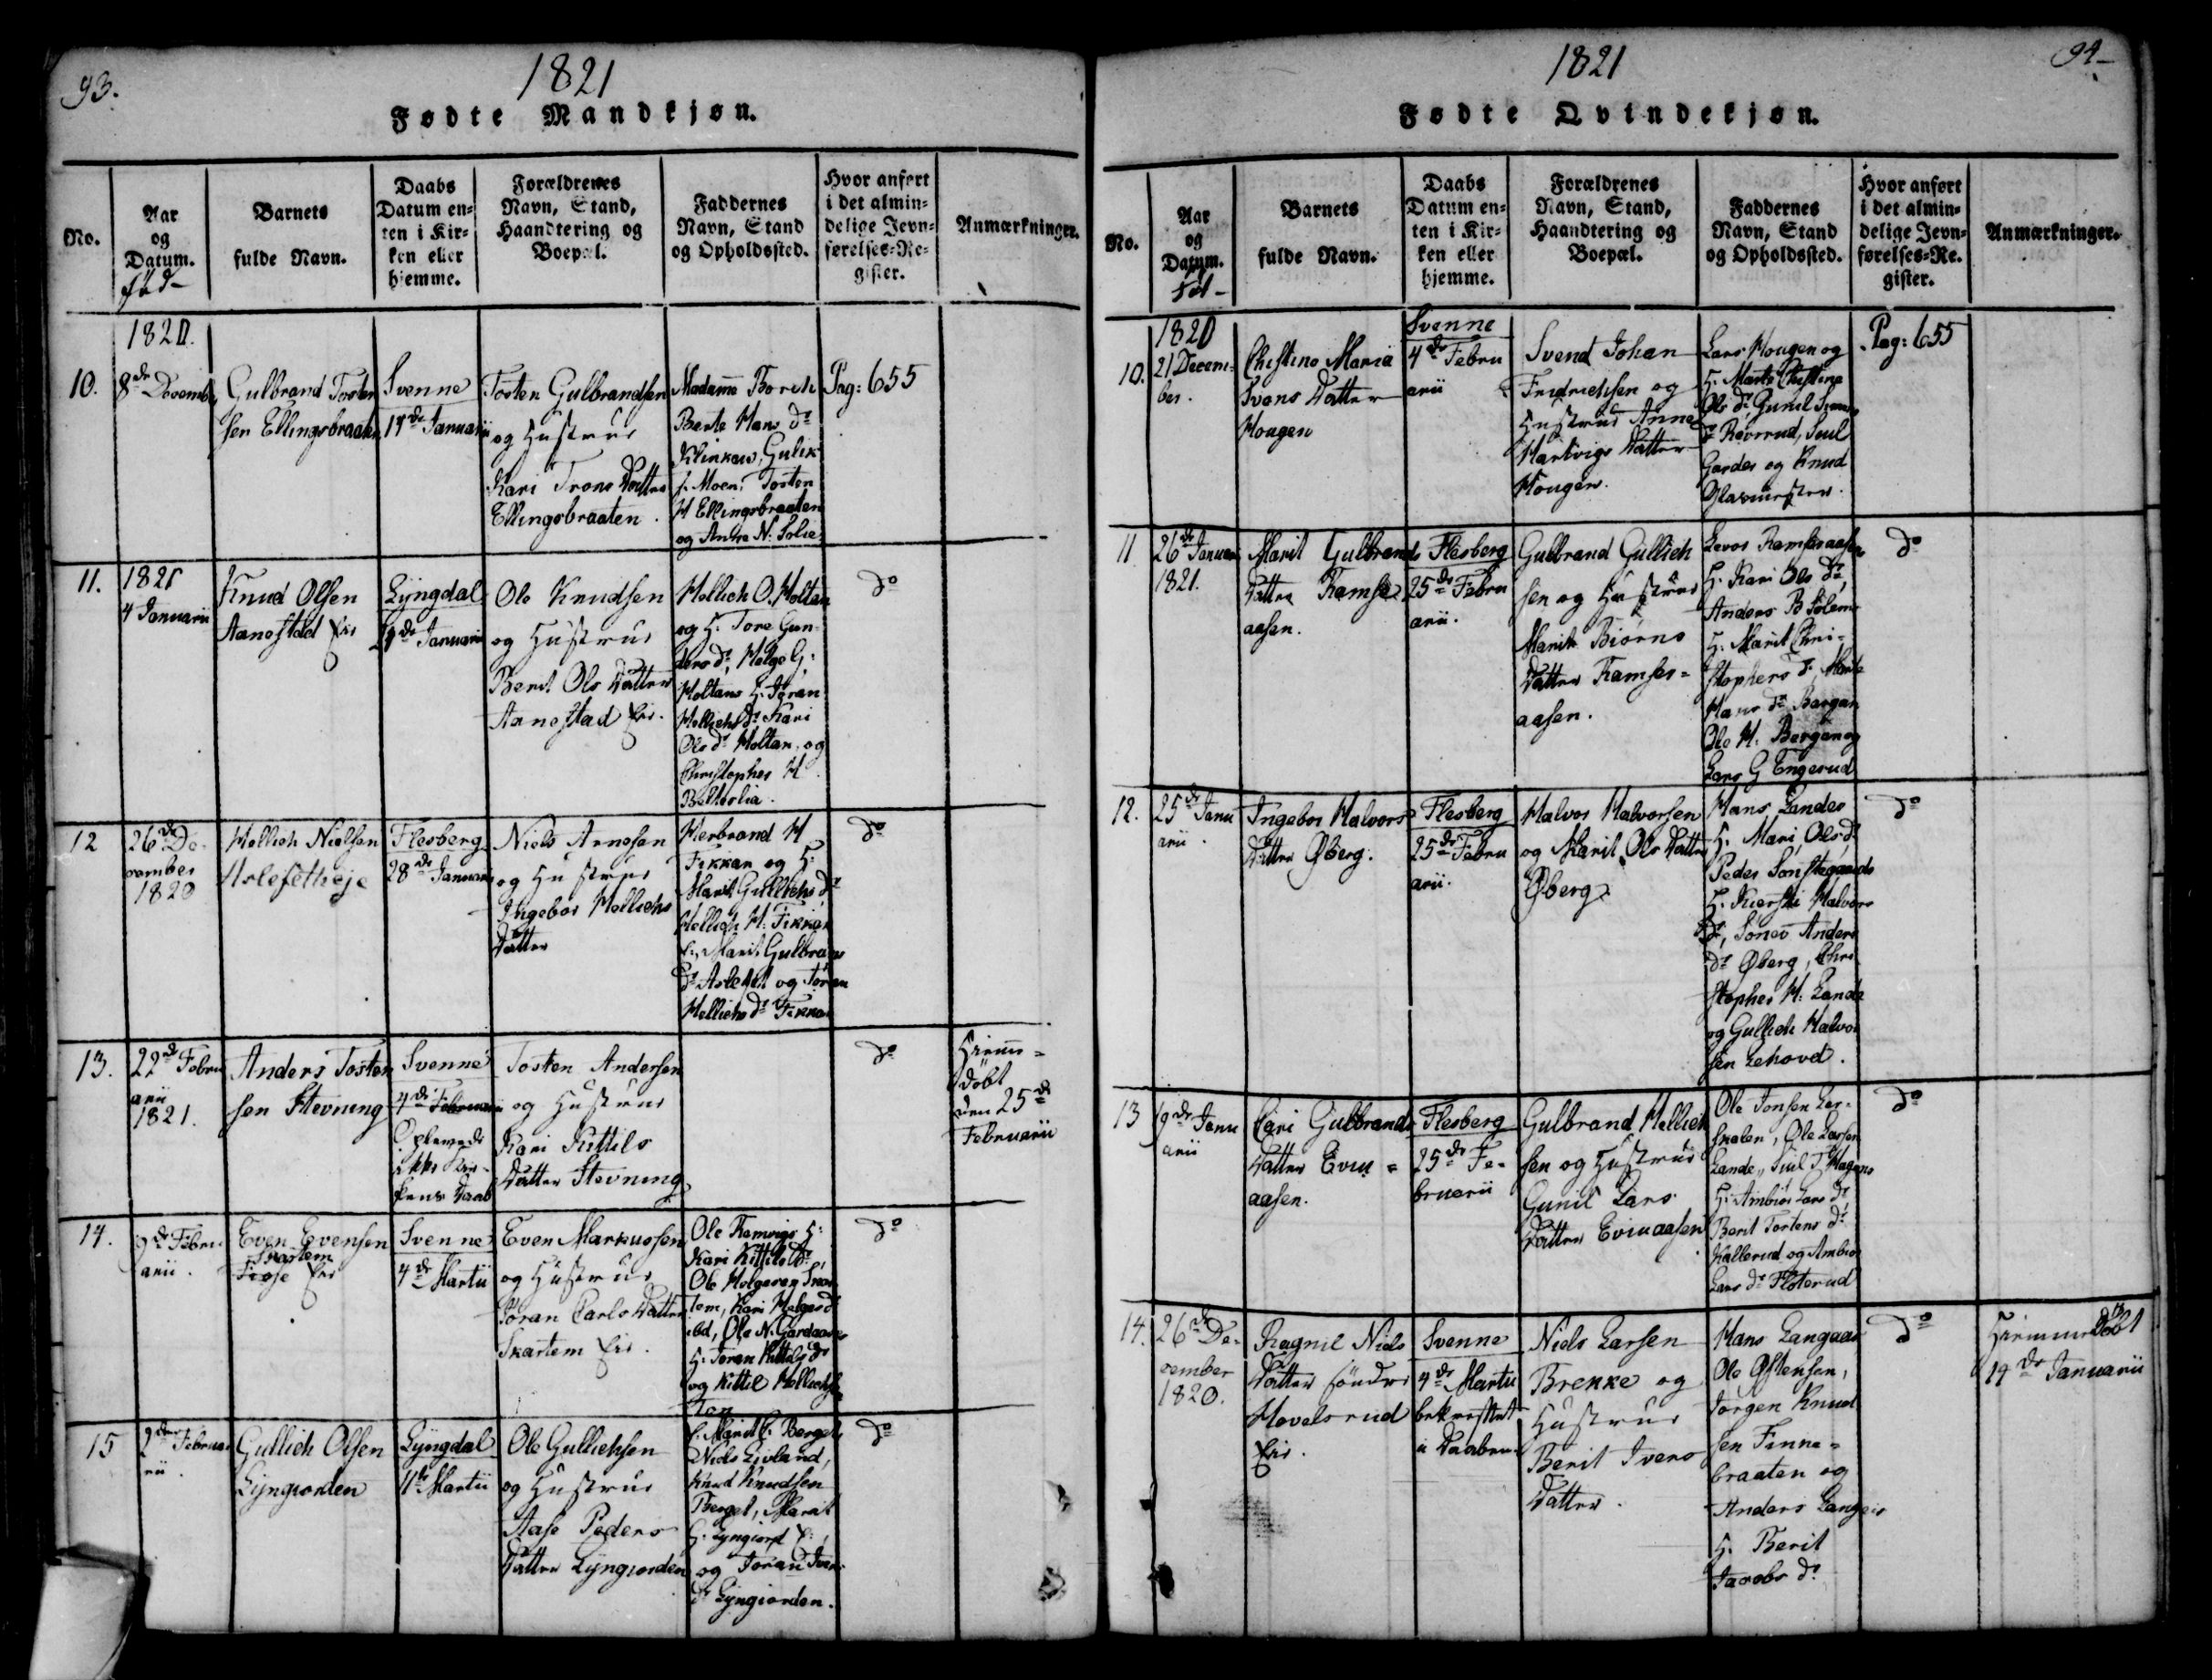 93.
1821
Fødte Mandkjøn.
No.
Aar
og
Datum.
fød-
Barnets
fulde Navn.
Daabs
Datum en-
ten i Kir-
ken eller
hjemme.
Forældrenes
Navn, Stand,
Haandtering og
Boepæl.
Faddernes
Navn, Stand
og Opholdssted.
Hvor anført
i det almin-
delige Jevn-
førelses-Re-
gister.
Anmærkninger.
1820.
10.
8de
Gulbrand Tosten
sen Ellingsbraaten
Svenne
14de Januarii
Tosten Gulbrandsen
og Hustrue
Kari Trons Datter
Ellingsbraaten.
Madame Borch
Berte Hans dr
Gulik
Moen, Tosten
H Ellingsbraaten
og N: Solie
Pag: 655
11.
1821
4 Januarii
Knud Olsen
Aanestad Eie
Lyngdal
Januarii
Ole Knudsen
og Hustrue
Berit Ols Datter
Aanestad Eie.
Hellich O. Holtan
og H. Tore Gun-
dr, Helge G:
Holtans H. Joran
Hellichs dr Kari
Ols dr Holtan, og
Christopher H
do
12
26de De-
cember
1820
Hellich Nielsen
Flesberg
28de Januarii
Niels Arnesen
og Hustrue
Ingebor Hellichs
Datter
Herbrand H
Fekkan og H:
Marit Gullichs dr
Hellich H. Fikkan
Marit Gulbrans
dr og Joran
Hellichs dr
do
13.
22de Febru
arii
1821.
Anders Tosten
sen Stevning
Svenne
4de Februarii
ikke
Daab
Tosten Andersen
og Hustrue
Kari Kittils
Datter Stevning
do
døbt
den 25de
Februarii
14.
9de Febru
arii.
Even Evensen
Skartem
Eie
Svenne
4de Martii
Even Markussen
og Hustrue
Joran Carls Datter
Skartem Eie.
Ole H:
Kari Kittils dr
Ole Helgesen
tem, Kari Helges dr
ibd, Ole N.
H: Joran Kittils dr
og Kittil Hellichsen
do
15
2den Februa
rii.
Gullich Olsen
Lyngiorden
Lyngdal
11te Martii
Ole Gullichsen
og Hustrue
Aase Peders
Datter Lyngiorden
Marit Berget
Niels Livland,
Knud Knudsen
Berget, Marit
og Joran Ivers
dr Lyngiorden.
do
94-
1821
Fødte Qvindekjøn.
No.
Aar
og
Datum.
Fød-
Barnets
fulde Navn.
Daabs
Datum en-
ten i Kir-
ken eller
hjemme.
Forældrenes
Navn, Stand,
Haandtering og
Boepæl.
Faddernes
Navn, Stand
og Opholdssted.
Hvor anført
i det almin-
delige Jevn-
førelses-Re-
gister.
Anmærkninger.
10.
1820
21 Decem-
ber.
Christine Maria
Svens Datter
Hougen
Svenne
4de Febru
arii
Svend Johan
Fredrechsen og
Hustrue Anne
Hartvigs Datter
Hougen.
Lars Hougen og
H. Marte Christine
Ols dr, Gunil
dr
og Knud
Glasmester.
Pag: 655
11
26de Januar
1821.
Marit Gulbrands
Datter Ramses
aasen.
Flesberg
25de Febru
arii.
Gulbrand Gullich
sen og Hustrue
Marit Biørns
Datter Ramses-
aasen.
H. Kari Ols dr,
Anders B
H. Marit Chri-
stophers dr, Marte
Hans dr Bergan
Ole H. Bergan og
Lars G Engerud
do
12.
25de Janu
arii.
Ingebor Halvors
Datter Øberg.
Flesberg
25de Febru
arii.
Halvor Halvorsen
og Marit Ols Datter
Øberg
Hans Landes
H. Mari Ols dr
Peder
H. Kiersti Halvors
dr, Anders
dr Øberg, Chri
stopher H. Lande
og Gullich Halvor
sen Lehovd.
do
13
19de Janu
arii
Cari Gulbrands
Datter Eviu-
aasen.
Flesberg
25de Fe-
bruarii
Gulbrand Hellich
sen og Hustrue
Gunil Lars
Datter Eviuaasen
Ole Jonsen Ler-
skalen, Ole Larsen
Lande,
H. Ambior Lars dr
Berit Tostens dr
Kallerud og Ambior
Lars dr Floterud
do
14.
26de De-
cember
1820.
Ragnil Niels
Datter søndre
Hovelsrud
Eie.
Svenne
4de Martii
bekræftet
i Daaben.
Niels Larsen
Brekke og
Hustrue
Berit Ivers
Datter.
Hans Langaas
Ole Østensen,
Jorgen Knud
sen Finne-
braaten og
Anders
H. Berit
Jacobs dr
do
Hiemmedøbt
14de Januarii